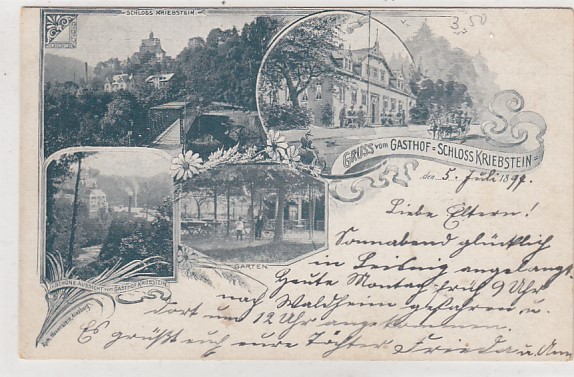 SCHLOSS KRIEBSTEIN.
3.50
GRUSS VOM GASTHOF = SCHLOSS KRIEBSTEIN =
den 5. Juli 1897.
SCHÖNE AUSSICHT VOM GASTHOF KRIEBSTEIN.
GARTEN.
Liebe Eltern!
Sonnabend glücklich
in Leibnig angelangt.
Heute Montag früh 9 Uhr
nach Waldheim gefahren u.
dort um 12 Uhr angekommen.
Es grüßt euch eure Töchter Frieda u. Anna